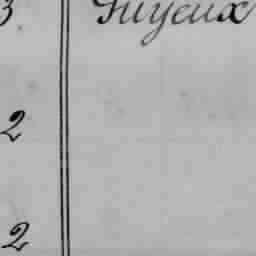 3 Tuyeux
2
2